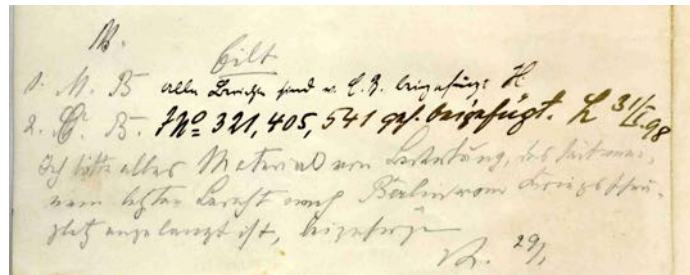 Eilt
1. M. B. alle Berichte sind v. C. B. beigefügt H.
2. C. B. J№ 321, 405, 541 geh. beigefügt. L 31/I.98
Ich bitte alles Material von Bedeutung, das seit mei-
nem letzten Bericht nach Berlin vom Kriegsschau-
platz angelangt ist, beizufügen
29/I